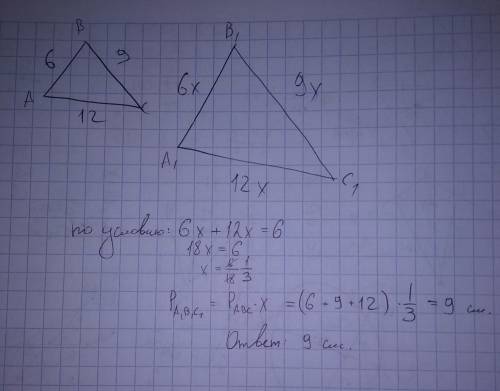 B
6 9
A C
12
B₁
6x 9x
A₁ C₁
12x
по условию: 6x + 12x = 6
18x = 6
x = 6/18 1/3
P A₁B₁C₁ = P ABC · x = (6 + 9 + 12) · 1/3 = 9 см.
Ответ: 9 см.